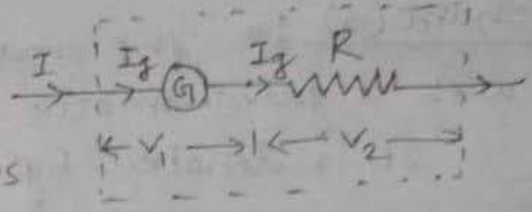 I Ig G Ig R
V₁ V₂
s